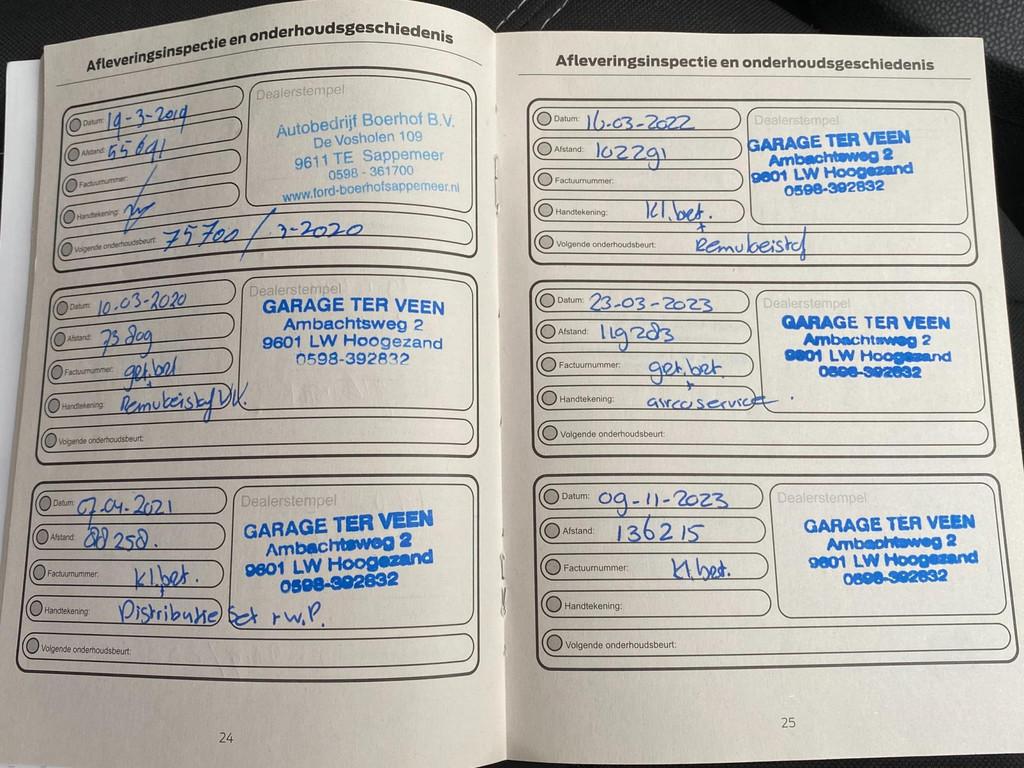 Afleveringsinspectie en onderhoudsgeschiedenis
Datum: 19-3-2019
Afstand: 55691
Factuurnummer:
Handtekening:
Volgende onderhoudsbeurt: 75700 / 3-2020
Dealerstempel
Autobedrijf Boerhof B.V.
De Vosholen 109
9611 TE Sappemeer
0598 - 361700
www.ford-boerhofsappemeer.nl
Datum: 10-03-2020
Afstand: 73809
Factuurnummer: gr.bet
+
Handtekening: Remvloeistof VV.
Volgende onderhoudsbeurt:
Dealerstempel
GARAGE TER VEEN
Ambachtsweg 2
9601 LW Hoogezand
0598-392832
Datum: 07-04-2021
Afstand: 88258.
Factuurnummer: kl.bet.
+
Handtekening: Distributie Set + W.P.
Volgende onderhoudsbeurt:
Dealerstempel
GARAGE TER VEEN
Ambachtsweg 2
9601 LW Hoogezand
0598-392832
24
Afleveringsinspectie en onderhoudsgeschiedenis
Datum: 16-03-2022
Afstand: 102291
Factuurnummer:
Handtekening: Kl.bet.
+
Volgende onderhoudsbeurt: Remvloeistof
Dealerstempel
GARAGE TER VEEN
Ambachtsweg 2
9601 LW Hoogezand
0598-392832
Datum: 23-03-2023
Afstand: 119283
Factuurnummer: gr.bet.
+
Handtekening: aircoservice.
Volgende onderhoudsbeurt:
Dealerstempel
GARAGE TER VEEN
Ambachtsweg 2
9601 LW Hoogezand
0598-392832
Datum: 09-11-2023
Afstand: 136215
Factuurnummer: kl.bet.
Handtekening:
Volgende onderhoudsbeurt:
Dealerstempel
GARAGE TER VEEN
Ambachtsweg 2
9601 LW Hoogezand
0598-392832
25